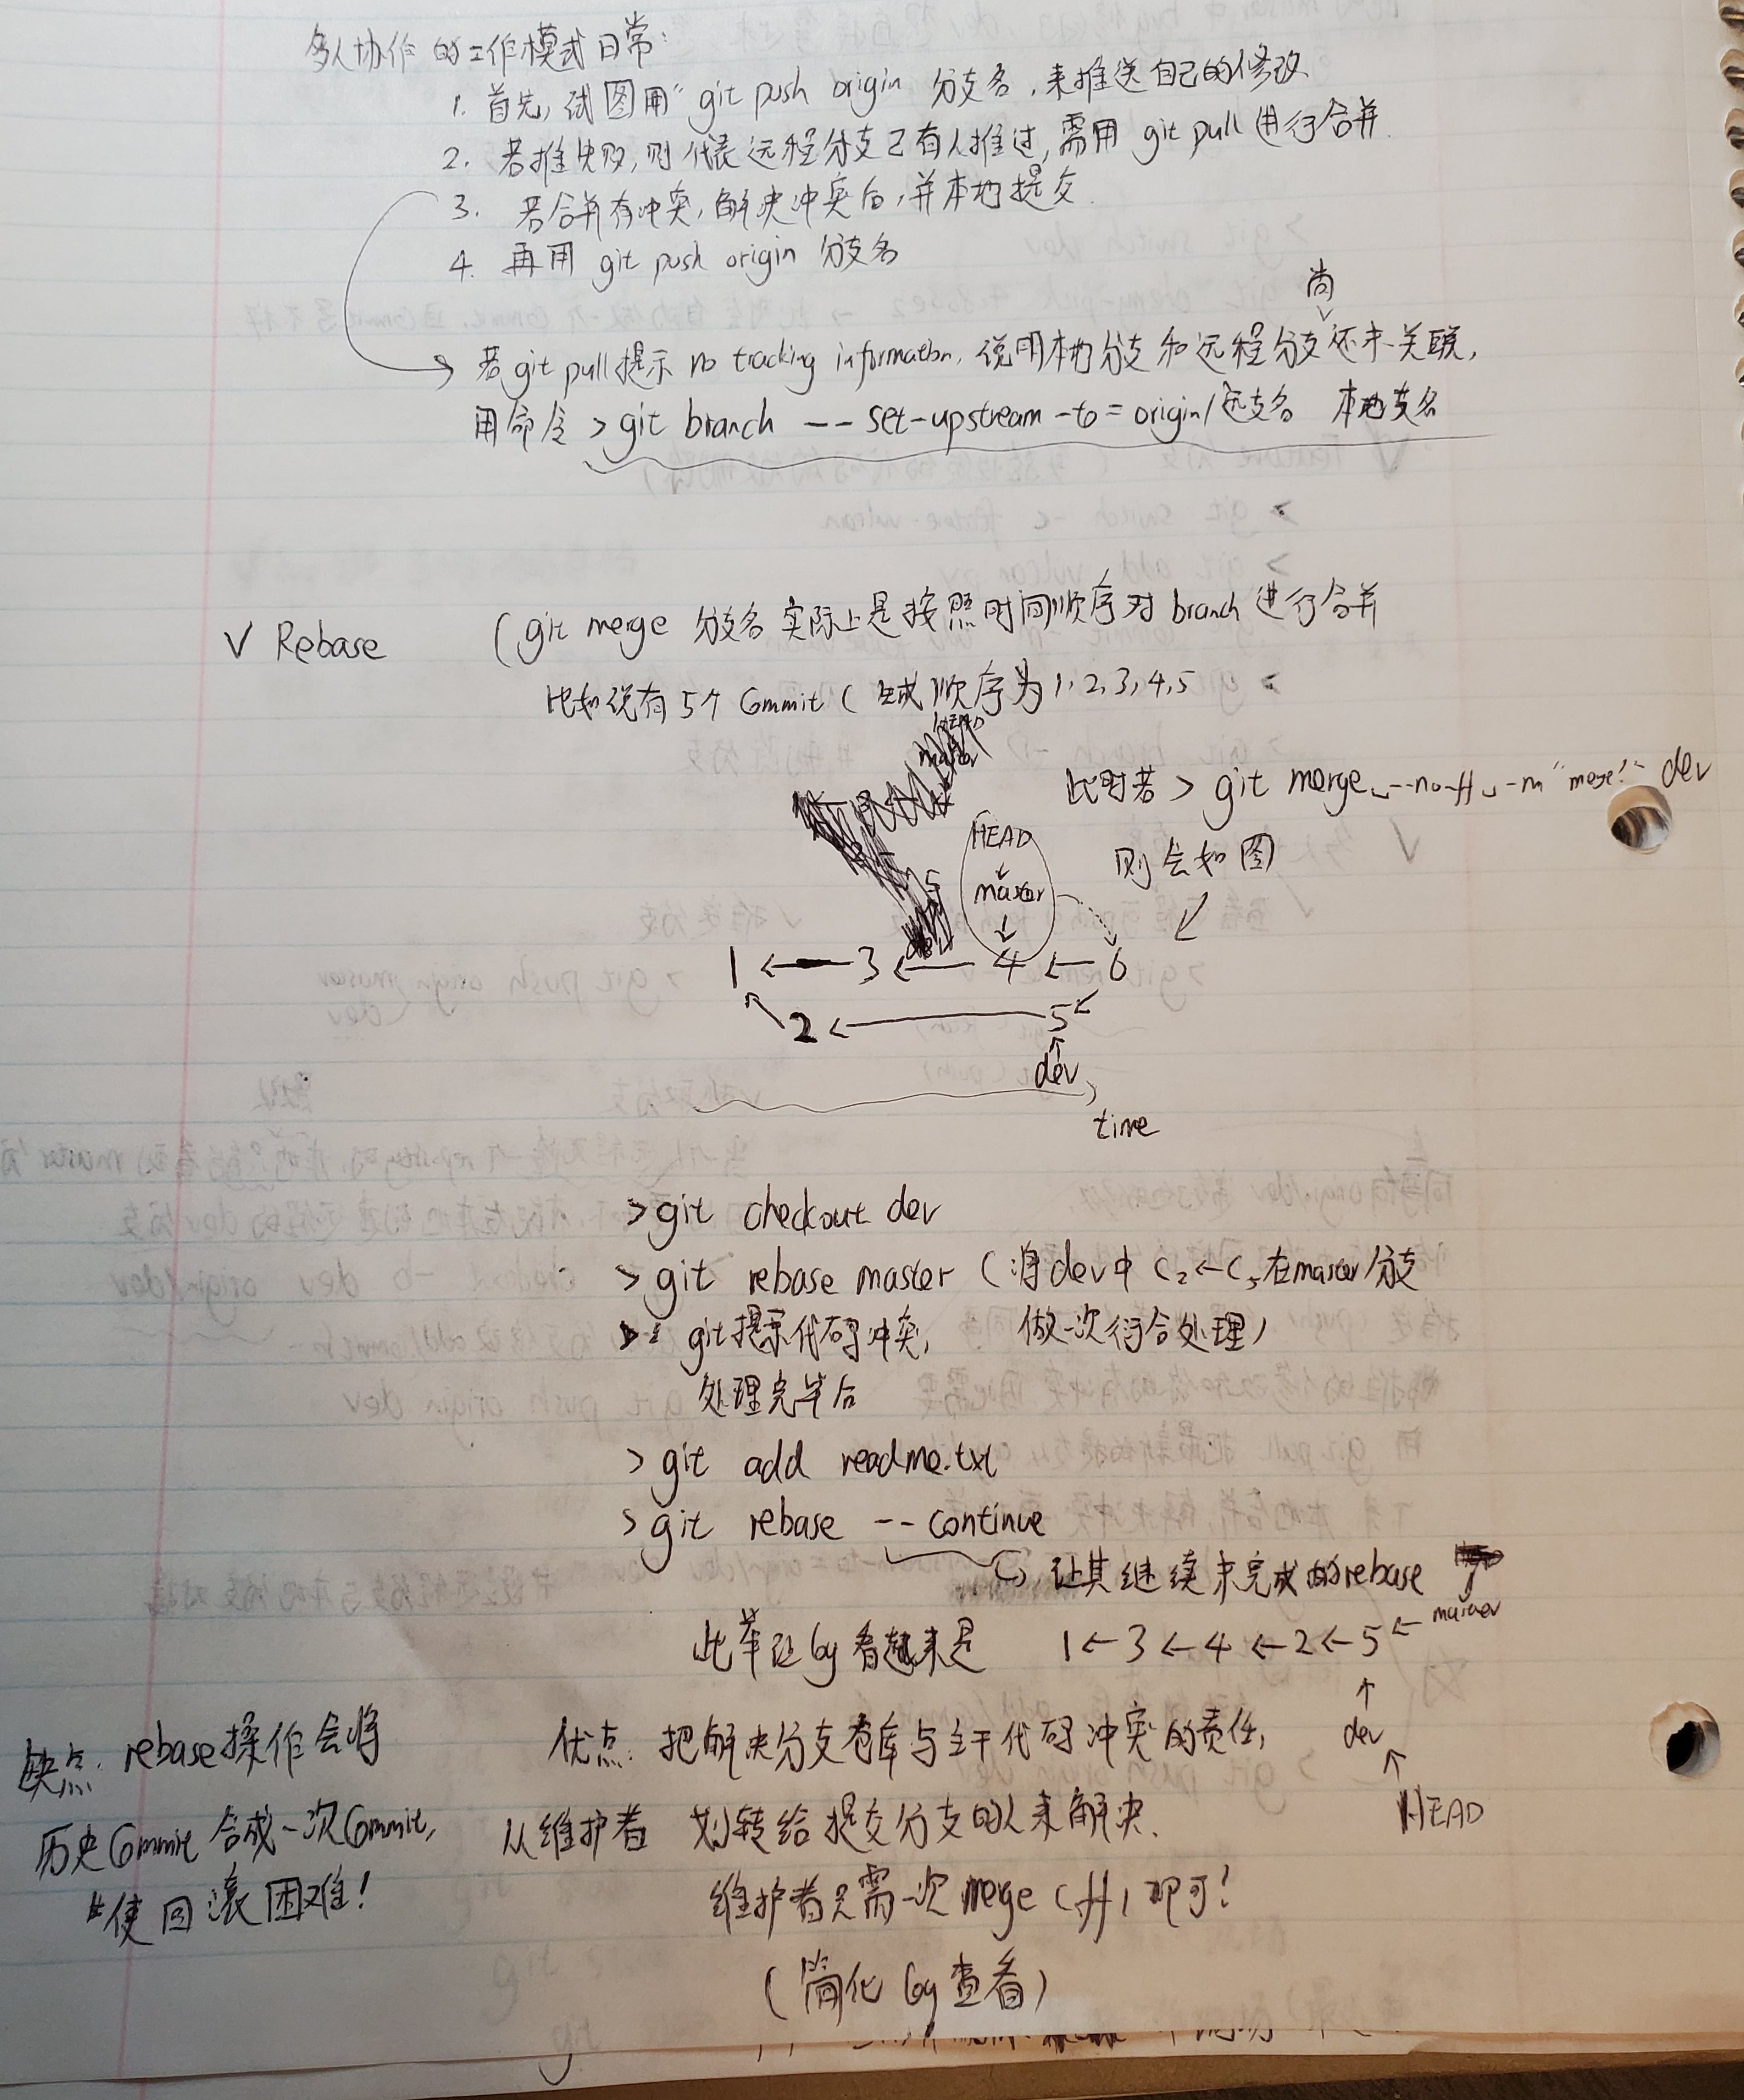 多人协作的工作模式日常:
1. 首先,试图用"git push origin 分支名,来推送自己的修改
2. 若推失败,则代表远程分支已有人推过,需用 git pull 进行合并
3. 若合并有冲突,解决冲突后,并本地提交.
4. 再用 git push origin 分支名
尚
若git pull提示 no tracking information, 说明本地分支和远程分支还未关联,
用命令 > git branch --set-upstream-to=origin/远支名 本地支名
√ Rebase (git merge 分支名 实际上是按照时间顺序对 branch 进行合并
比如说有5个Commit(生成顺序为1,2,3,4,5
此时若 > git merge --no-ff -m "merge!" dev
HEAD
则会如图
master
1 ← 3 ← 4 ← 6
2 ← 5
dev
time
> git checkout dev
> git rebase master (将dev中 C2←C5在master分支
git提示代码冲突, 做一次衍合处理)
处理完毕后
> git add readme.txt
> git rebase --continue
让其继续未完成的rebase
此举让log看起来是 1←3←4←2←5← master
dev
HEAD
优点: 把解决分支仓库与主干代码冲突的责任,
从维护者 划转给提交分支的人来解决.
维护者只需一次merge(ff)即可!
(简化log查看)
缺点. rebase操作会将
历史Commit合成一次Commit,
使回滚困难!